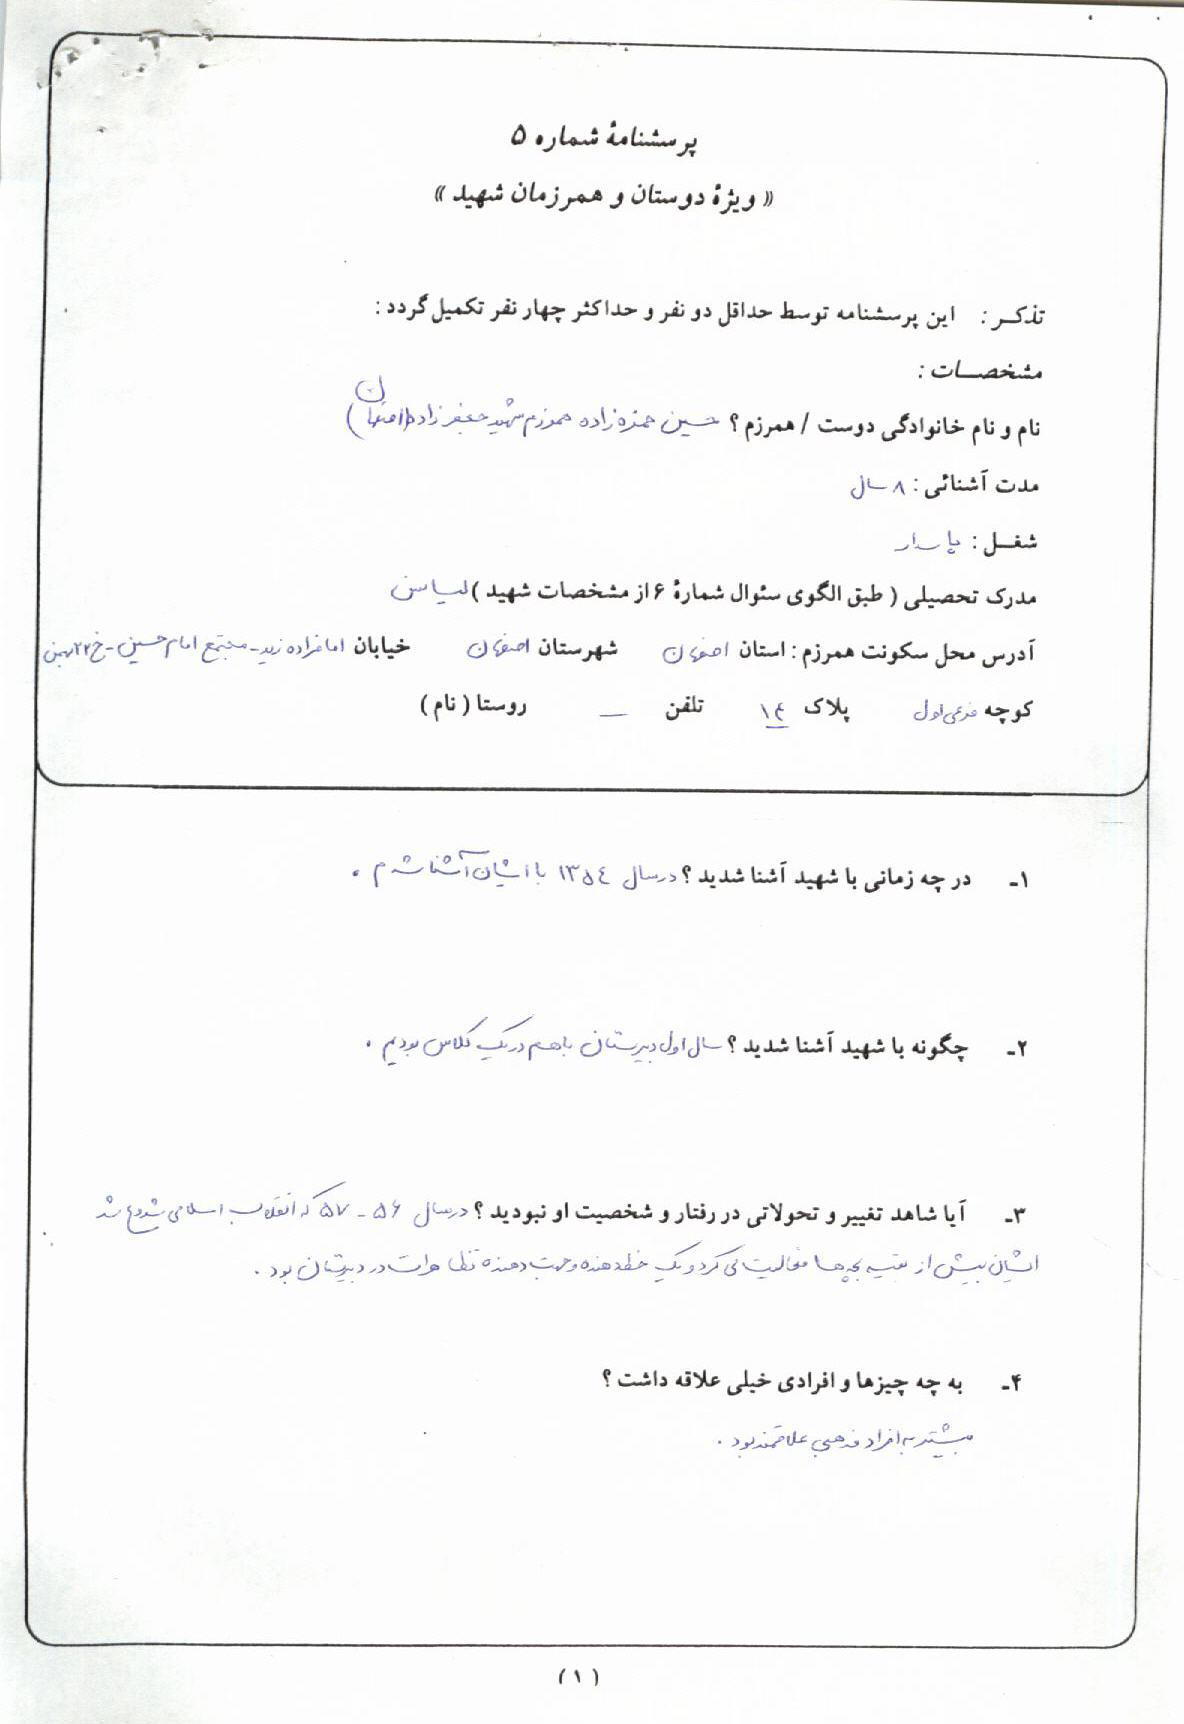 پرسشنامهٔ شماره ۵
« ویژهٔ دوستان و همرزمان شهید »
تذکـر : این پرسشنامه توسط حداقل دو نفر و حداکثر چهار نفر تکمیل گردد :
مشخصـات :
نام و نام خانوادگی دوست / همرزم ؟ حسین حمزه زاده همرزم شهید جعفرزاده (اصفهان)
مدت آشنائی : ۸ سال
شغـل : پاسدار
مدرک تحصیلی ( طبق الگوی سئوال شمارهٔ ۶ از مشخصات شهید ) لیسانس
آدرس محل سکونت همرزم : استان اصفهان شهرستان اصفهان خیابان امامزاده زید - مجتمع امام حسین - خ ۲۲ بهمن
کوچه فرعی اول پلاک ۱۴ تلفن — روستا ( نام )
۱ـ در چه زمانی با شهید آشنا شدید ؟ در سال ۱۳۵۴ با ایشان آشنا شدم .
۲ـ چگونه با شهید آشنا شدید ؟ سال اول دبیرستان با هم در یک کلاس بودیم .
۳ـ آیا شاهد تغییر و تحولاتی در رفتار و شخصیت او نبودید ؟ در سال ۵۶ - ۵۷ که انقلاب اسلامی شروع شد
ایشان بیش از بقیه بچه ها فعالیت می کرد و یک خط دهنده و جهت دهنده تظاهرات در دبیرستان بود .
۴ـ به چه چیزها و افرادی خیلی علاقه داشت ؟
بیشتر به افراد مذهبی علاقمند بود .
( ۱ )